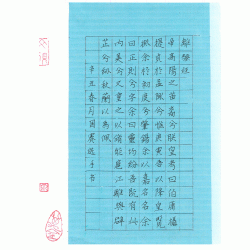 離騷經
帝高陽之苗裔兮朕皇考曰伯庸攝
提貞於孟陬兮惟庚寅吾以降皇覽
揆余初度兮肇錫余以嘉名名余
曰正則兮字余曰靈均紛吾既有此
內美兮又重之以脩能扈江離與辟
芷兮紉秋蘭以為佩
辛丑春月國手書